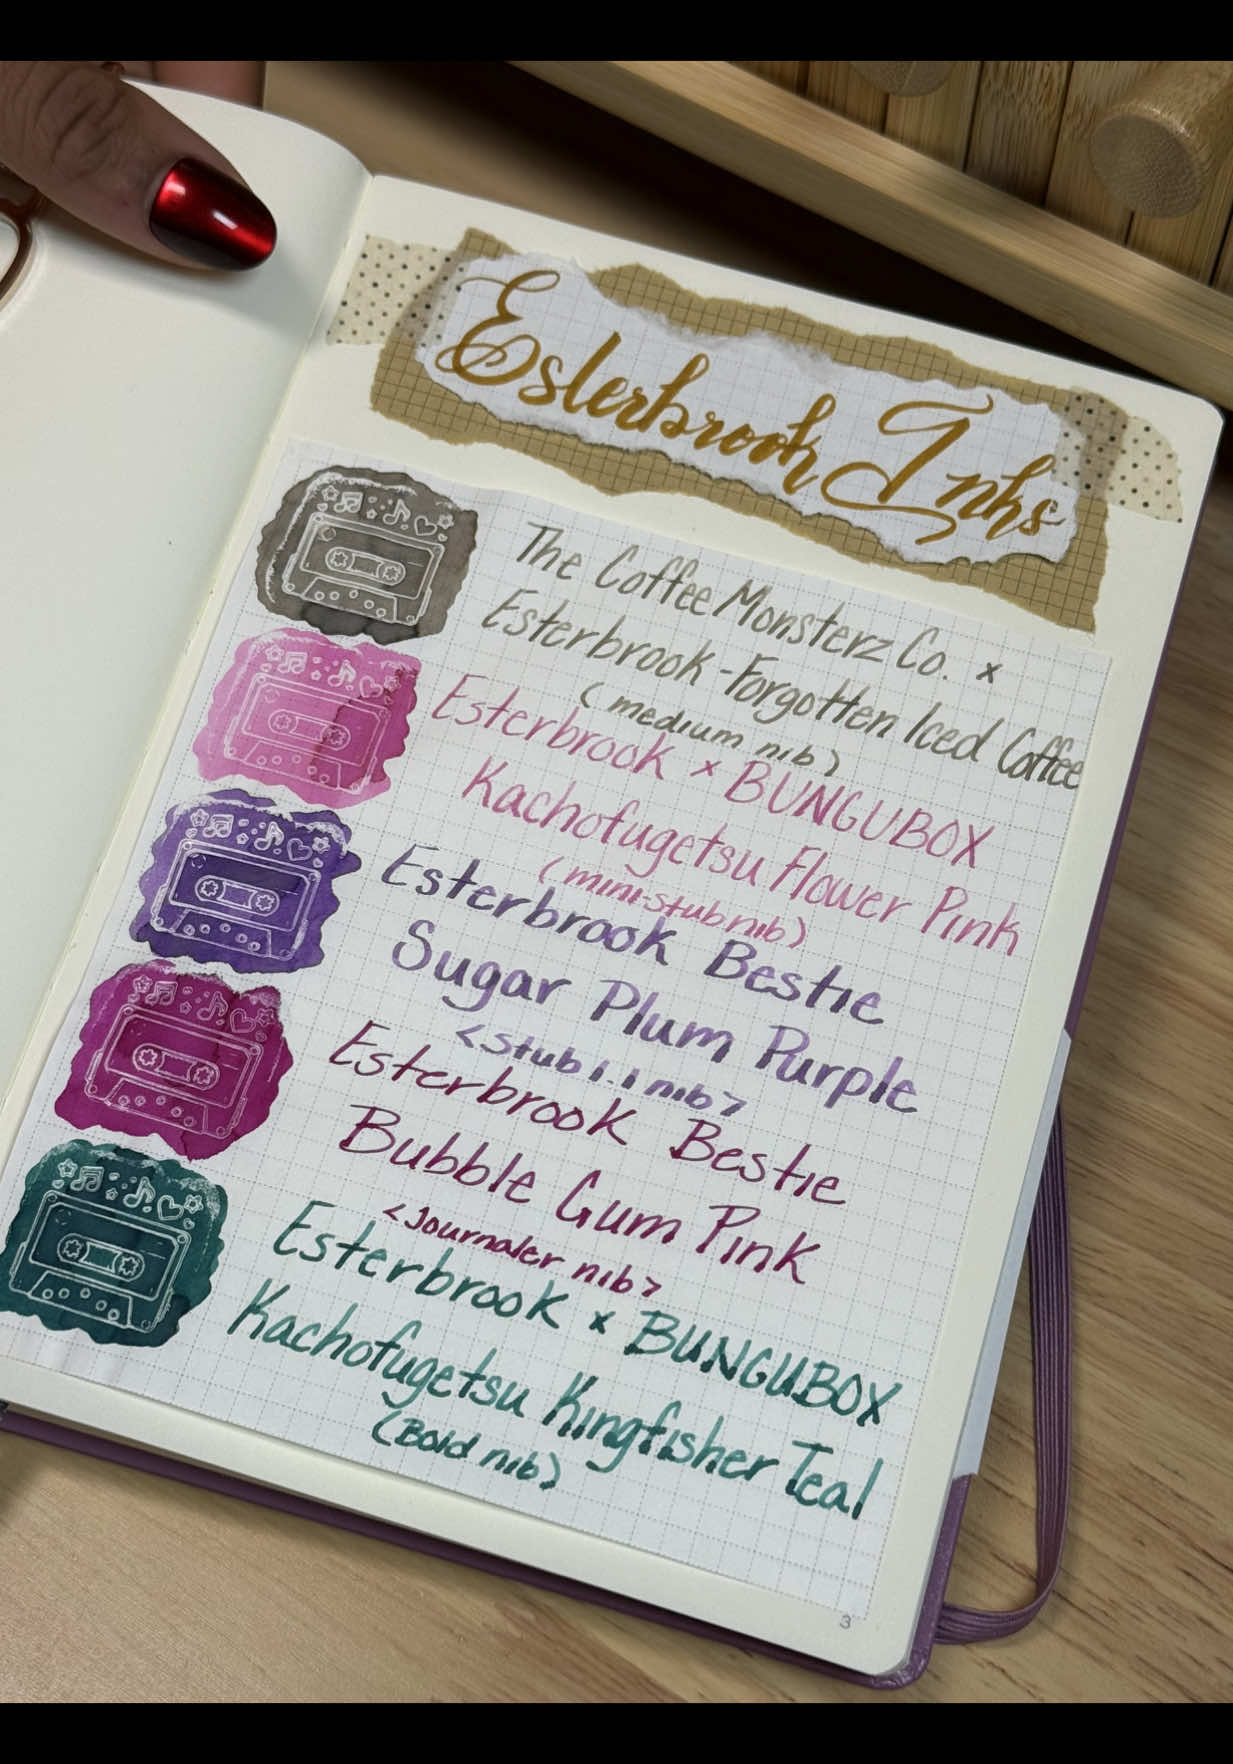 Esterbrook Inks
The Coffee Monsterz Co. x
Esterbrook - Forgotten Iced Coffee
(medium nib)
Esterbrook x BUNGUBOX
Kachofugetsu Flower Pink
(mini-stub nib)
Esterbrook Bestie
Sugar Plum Purple
<stub 1.1 nib>
Esterbrook Bestie
Bubble Gum Pink
<Journaler nib>
Esterbrook x BUNGUBOX
Kachofugetsu Kingfisher Teal
(Bold nib)
3